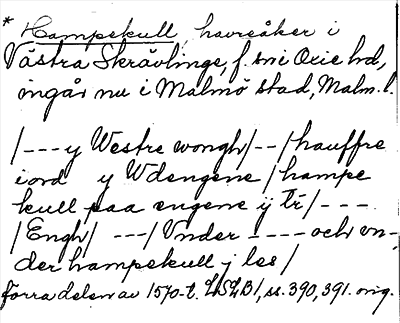 * Hampekull, havreåker i
Västra Skrävlinge, f. sn i Oxie hd,
ingår nu i Malmö stad, Malm. l.
/--- y Westre wongh/--/hauffre
iord y Wdengene/hampe
kull paa engene ij tr/---
/Engh/ ---/Vnder ---- och vn-
der hampekull j les/
Förra delen av 1570-t. LSLB1, ss. 390, 391. orig.